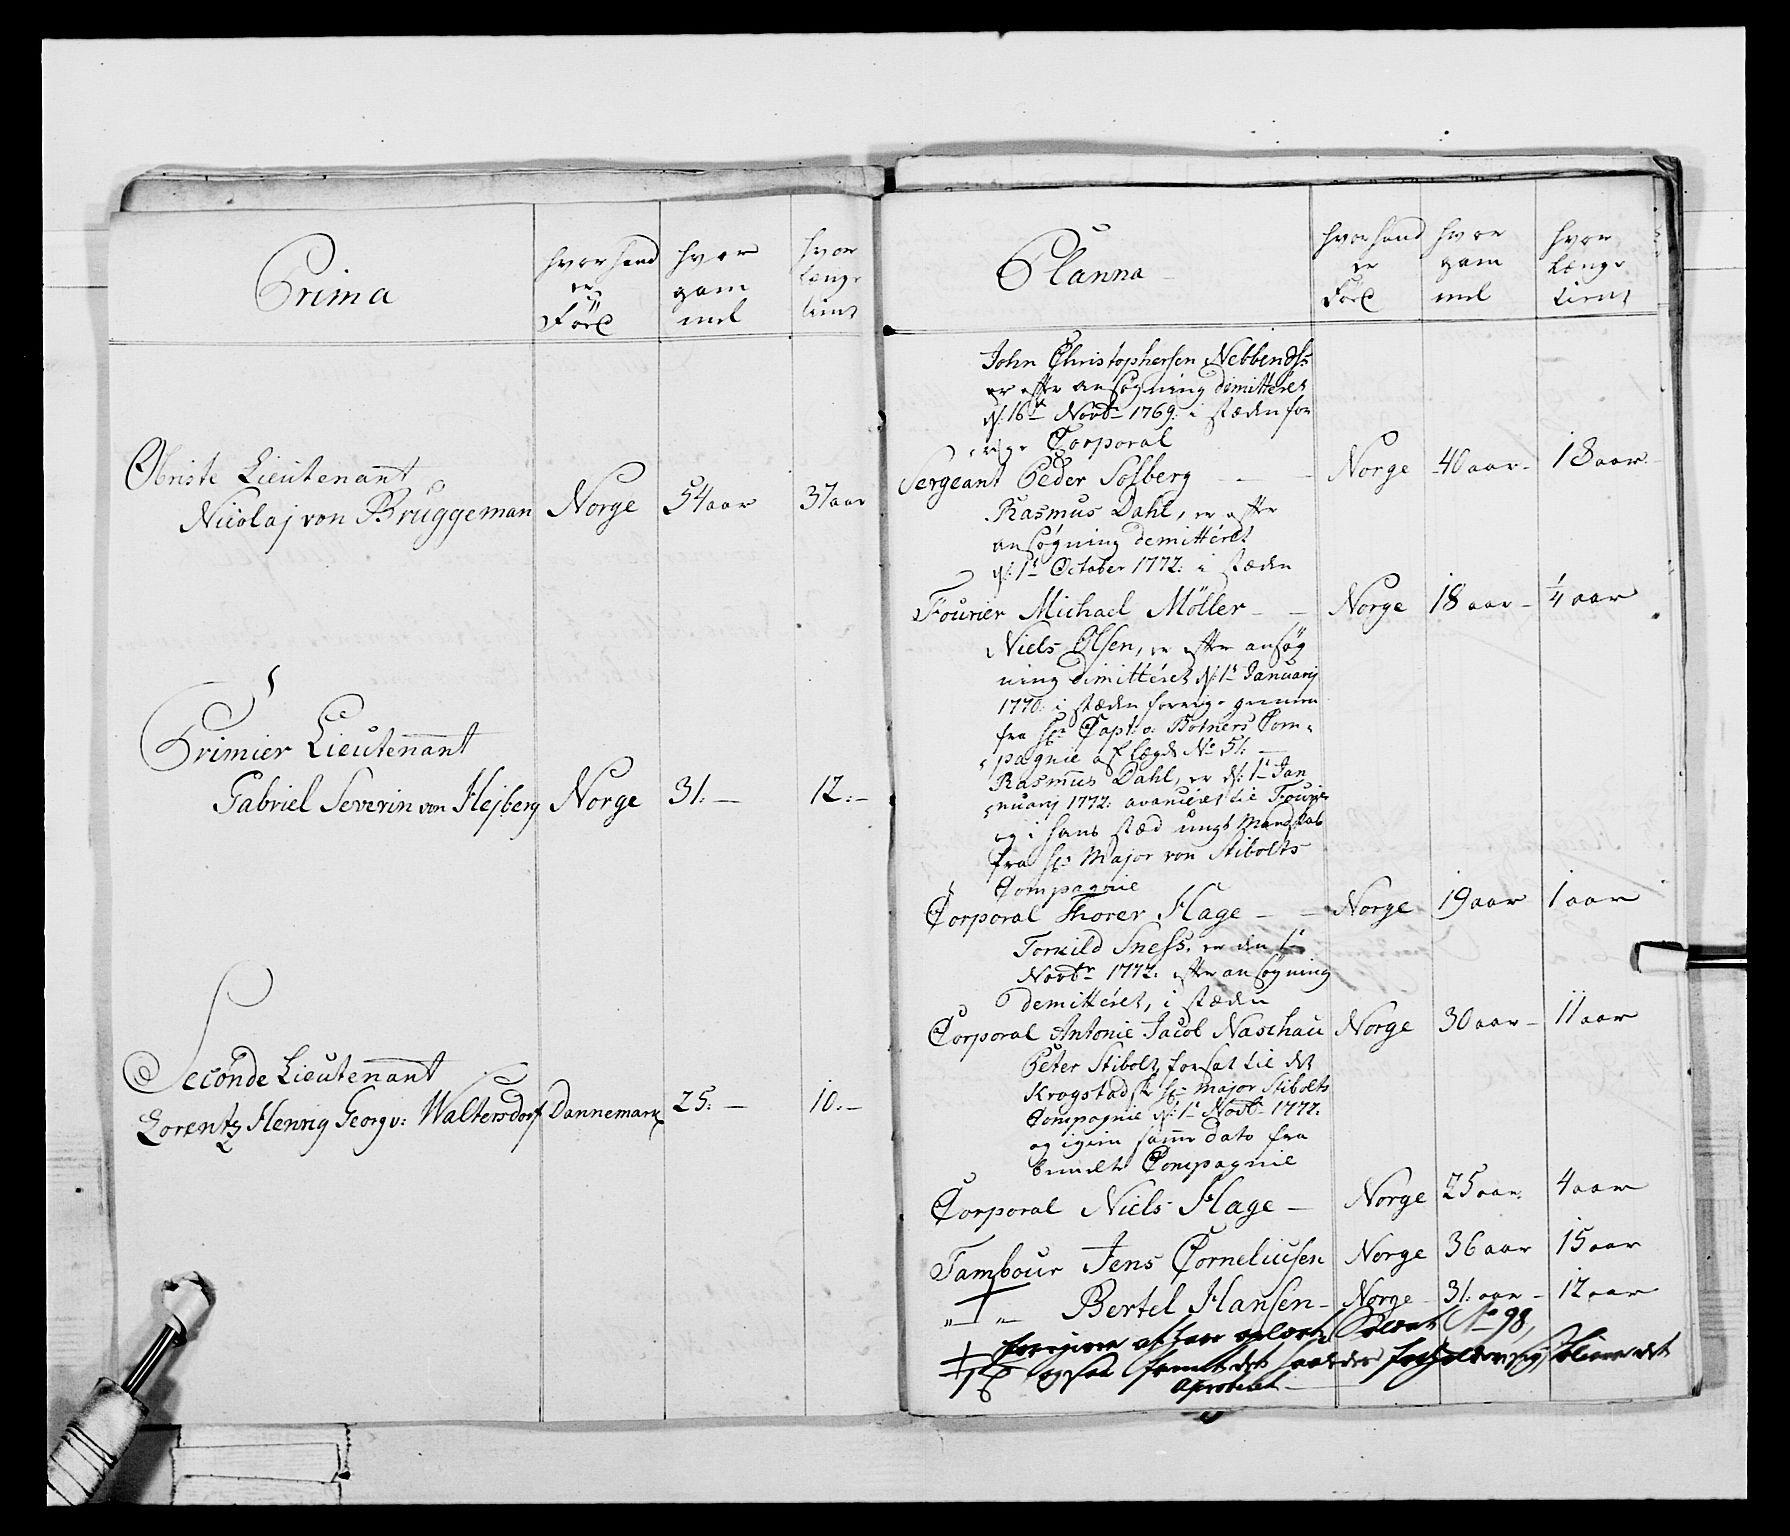 Prima
hvor hand
er
Föd
hvor
gam
mel
hvor
længe
tient
Obriste Lieutenant
Nicolaj von Brüggeman Norge 54 aar 37 aar
Primier Lieutenant
Gabriel Severin von Hejberg Norge 31:— 12:—
Seconde Lieutenant
Lorentz Henrig Georg v: Waltersdorf Dannemark 25:— 10:—
Planna
hvor hand
er
Föd
hvor
gam
mel
hvor
længe
tient
John Christophersen
er efter ansøgning dimitteret
d: 16de Novbr 1769: i stæden for
rige Corporal
Sergeant Peder Solberg — — Norge 40 aar— 18 aar
Rasmus Dahl, er efter
ansøgning demitteret
d: 1te October 1772: i stæden
Fourier Michael Möller — — Norge 18 aar— 1/4 aar
Niels Olsen, er efter ansøg
ning dimitteret d: 1te Januarij
1770: i stæden forrige gemeen
fra Hr Capt: v: Botners Com-
pagnie af lægd No 51: —
Rasmus Dahl, er d: 1te Jan
nuarij 1772: avanceret til Fourier
og i hans stæd ungt Mandskab
fra Hr Major von Stibolts
Compagnie
Corporal Thorer Hage — — Norge 19 aar 1 aar
Torkild Sness. er den 1te
Novbr 1772: efter ansøgning
demitteret, i stæden
Corporal Antonie Jacob Naschau Norge 30 aar— 11 aar
Peter Stibolt, forsat til det
Krogstadske Hr Major Stibolts
Compagnie d: 1te Novbr 1772:
og igien samme dato fra
bemelte Compagnie
Corporal Niels Hage — Norge 25 aar. 4 aar
Tambour Jens Corneliusen Norge 36 aar 15 aar
„ — „ — Bertel Hansen— Norge— 31: aar— 12 aar
at have oplært Soldat No 98,
det
Aproberet—